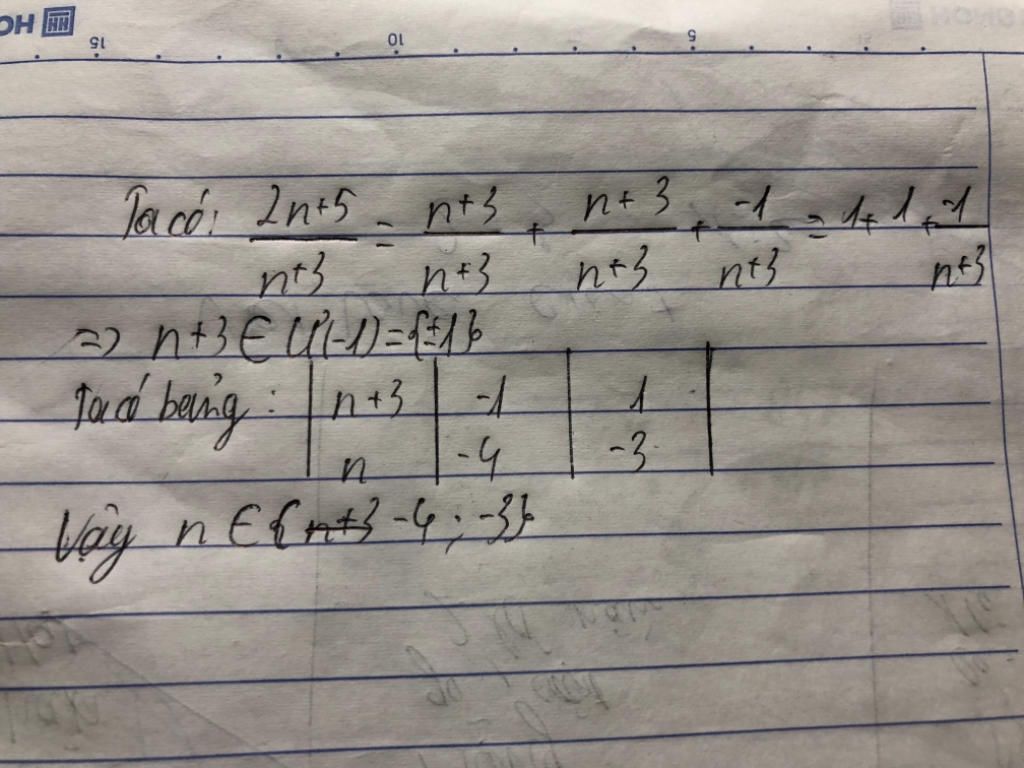 HOH
15 10 5
Ta có: \frac{2n+5}{n+3} = \frac{n+3}{n+3} + \frac{n+3}{n+3} + \frac{-1}{n+3} = 1 + 1 + \frac{-1}{n+3}
=> n+3 ∈ Ư(-1) = {±1}
Ta có bảng : | n+3 | -1 | 1 |
| n | -4 | -3 |
Vậy n ∈ { ~~n+3~~ -4 ; -3}